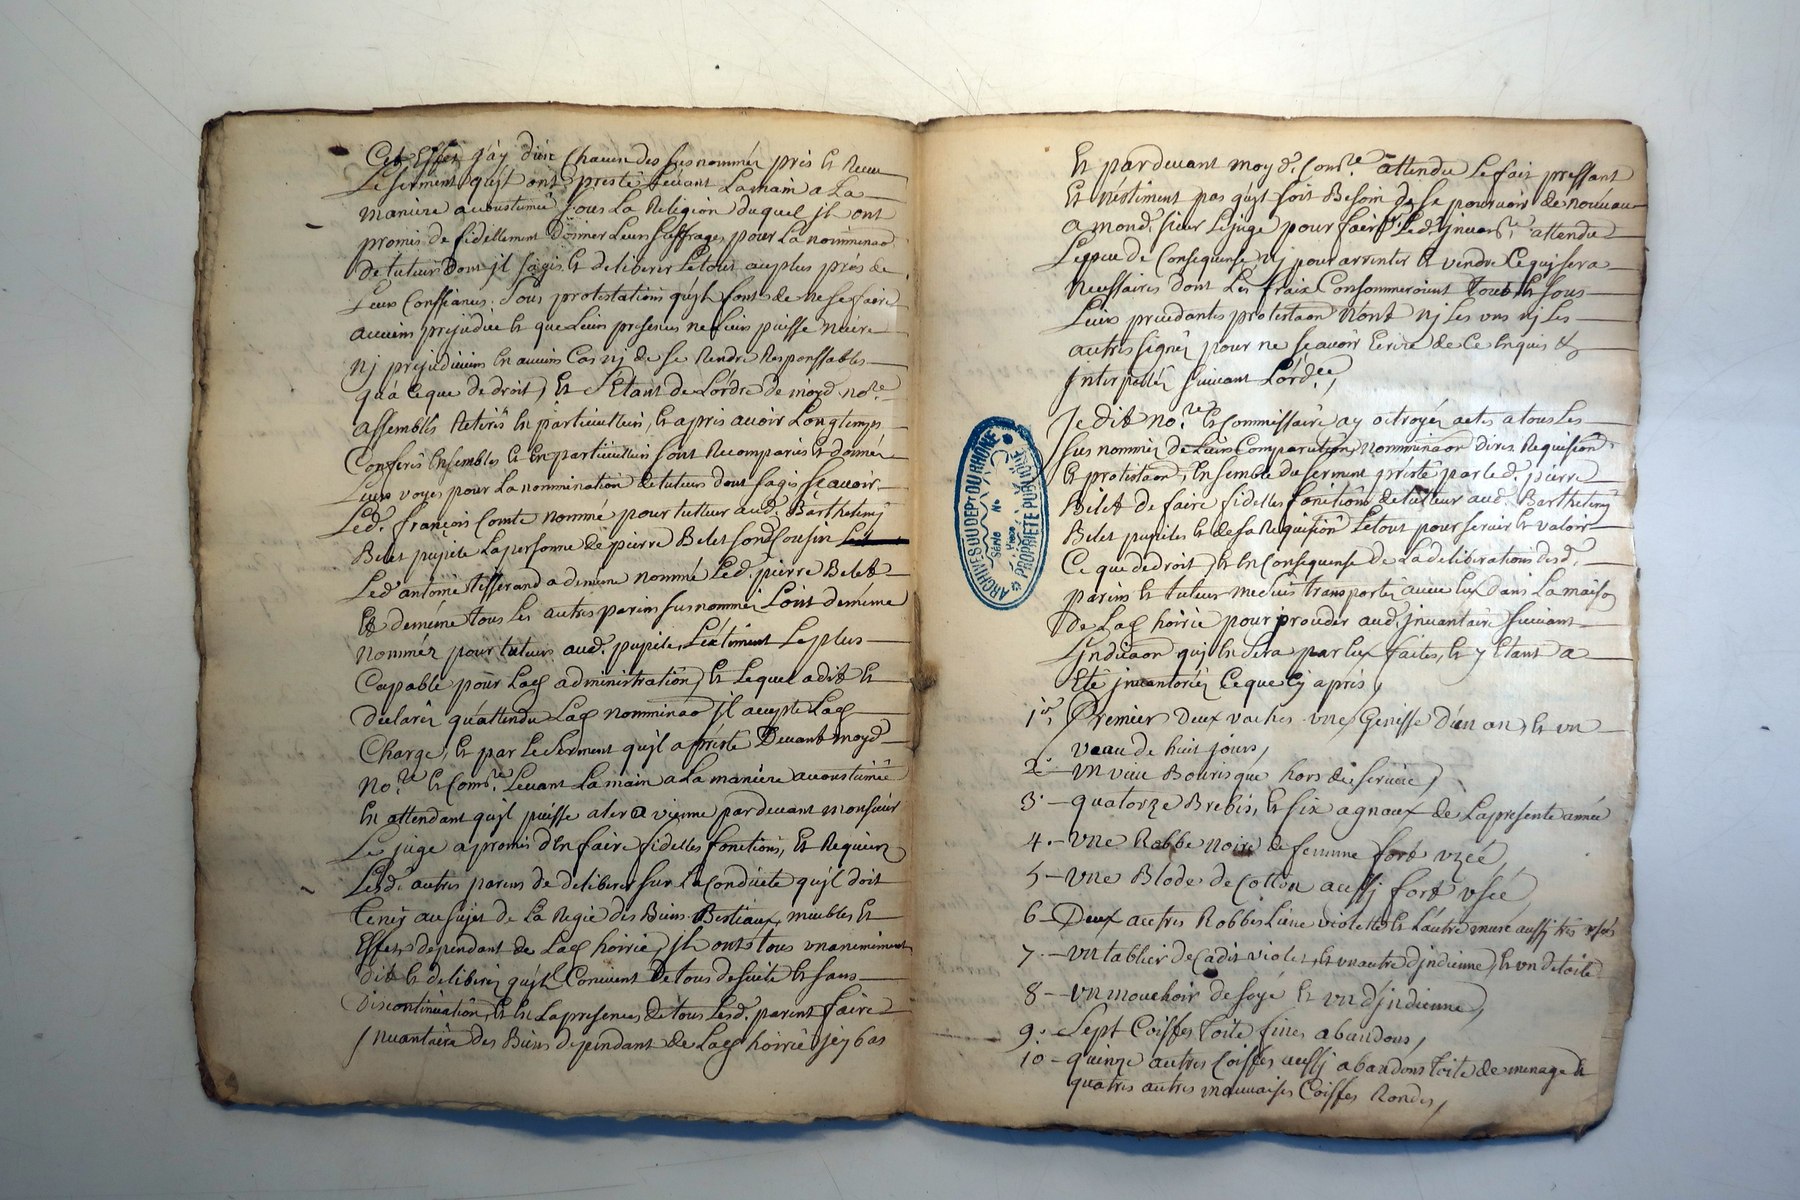 Cet Effet j'ay d'un Chacun des susnommés pris Et Receu
Le serment qu'jl ont presté Levant La main a La
maniere accoustumée sous La Religion duquel jl ont
promis de fidellement donner Leurs suffrages pour La nominnaon
de tuteur dont jl s'agis Et deliberer Le tout au plus prés de
Leur Conssiances. Sous protestations qu'jls font de ne se faire
aucuns prejudice Et que Leurs presences ne Leur puisse nuire
nj prejudicier En aucuns Cas nj de se Rendre Responssables
qu'a Ce que de droit, Et S'Etant de L'ordre de moyd no.re
assemblés Retirés En particuillier, Et apris avoir Longtemps
Conferés Ensembles Et En particuillier sont Recomparies Et donner
Leurs voyes pour La nommination de tuteurs dont s'agis sçavoir
Led. françois Comte nommé pour tutteur aud. Barthelemj
Belet pupile La persone de pierre Belet son Cousin
Led. antoine tisserand a dememe nommé Led. pierre Belet
Et dememe tous Les autres parens susnommés L'ont dememe
Nommér pour tuteurs aud. pupile, L'extiment Le plus
Capable pour Lad administration, Et Lequel a dit Et
declarér qu'attendu Lad nomminaõ jl accepte Lad
Charge, Et par Le serment qu'jl a presté Devant moyd
No.re Et Com.re Levant La main a La maniere accoustumée
En attendant qu'jl puisse aler a vienne pardevant monsieur
Le juge a promis d'En faire fidelles fonctions, Et Requierz
Lesd. autres parens de deliberer sur La Conduite qu'jl doit
tenir au sujet de La Regie des Biens Bestiaux, meubles Et
Effets dependant de Lad hoirie, jls ont tous unanimement
dit Et deliberér qu'jl Convient De tous de suite Et sans
Discontinuation, Et En La presences de tous Lesd. parent faire
Jnuantaire des Biens dependant de Lad hoirie jcy bas
Et pardevant moy d. Com.re attendu Le fait pressant
Et n'estiment pas qu'jl soit Besoin de se pourvoir de nouveau
a mond. sieur Le juge pour faire Led. jnuant.re attendu
Le peu de Consequense nj pour arrenter Et vendre Ce qui sera
Necessaires dont Les fraix Consommeroient tout Et sous
Leurs precedantes protestaon N'ont nj Les uns nj Les
autres signér pour ne sçavoir Ecrire de Ce Enquis Et
Jnterpellér suivant L'ord.ce,
Je dit no.re Et Commissaire ay octroyér actes a tous Les
sus nommér de Leurs Comparution, nomminaon dires Requision
Et protestaon, Ensemble du serment presté par Led. pierre
Belet de faire fidelles fonctions de tutteur aud. Barthelemj
Belet pupiles Et de sa Requision Le tout pour servir Et valoir
Ce que de droit, Et En Consequense de La deliberations desd.
parens Et tuteur me suis transportér avec Eux dans La maison
de Lad hoirie pour proceder aud. jnuantaire suivant
L'jndicaon qui En sera par Eux faites, Et y Etant a
Eté jnuantoriér Ce que Cy apris,
1er Premier deux vaches une Genisse d'un an, Et un
veau de huit jours,
2. un vieu Bourisque hors de service,
3. quatorze Brebis, Et six agnaux de La presente année
4. une Robbe noire de femme fort uzée,
5 une Blode de Cotton aussj fort usée,
6 Deux autres Robbes L'une violette Et L'autre muse aussj tres usés
7. un tablier de Cadis violet, Et un autre d'jndienne, Et un de toile
8 un mouchoir de soye Et un d'jndienne,
9. Sept Coiffes toile fines abandons,
10 quinze autres Coiffes aussj abandons toile de menage Et
quatres autres mauvaises Coiffes Rondes,
ARCHIVES DU DEPt DU RHÔNE
PROPRIÉTÉ PUBLIQUE